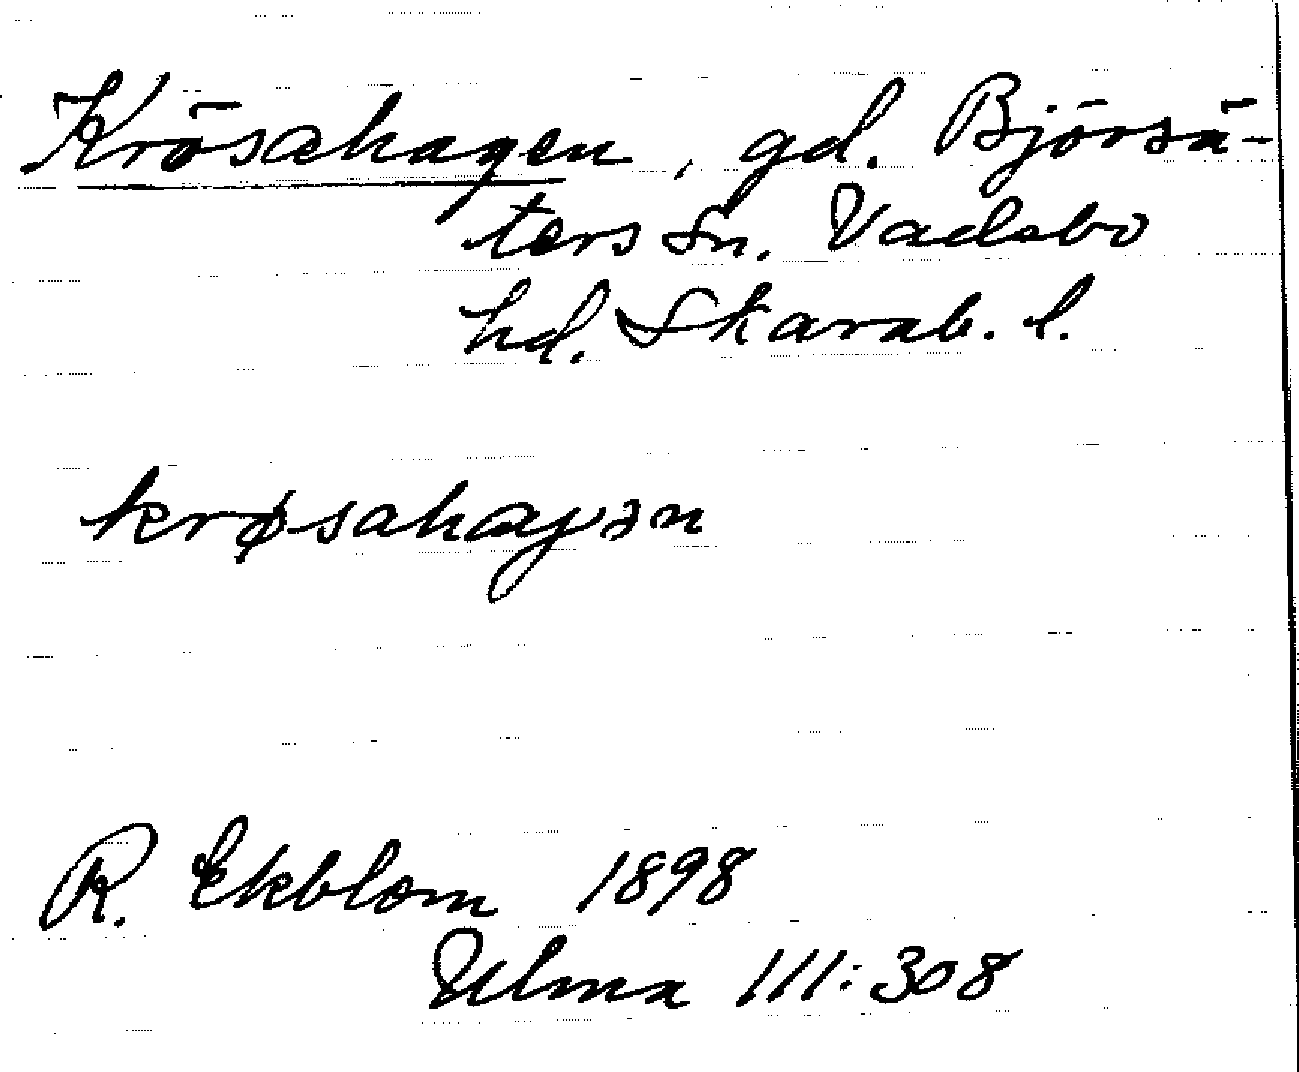 Krösahagen, gd. Björsä-
ters sn. Vadsbo
hd. Skarab. l.
krøsahaγən
R. Ekblom 1898
Ulma 111:308